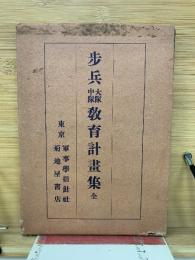 步兵大隊中隊教育計畫集 全
東京 軍事學指針社
菊地屋書店